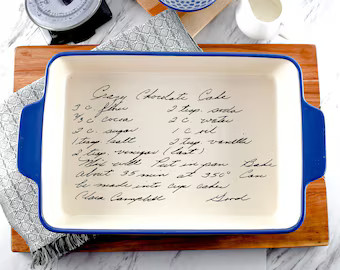 Crazy Chocolate Cake
3 c. flour 2 tsp. soda
2/3 c. cocoa 2 c. water
2 c. sugar 1 c. oil
1 tsp. salt 2 tsp. vanilla
2 tbsp. vinegar (last)
Mix well. Put in pan Bake
about 35 min at 350° Can
be made into cup cakes
Clara Campbell Good